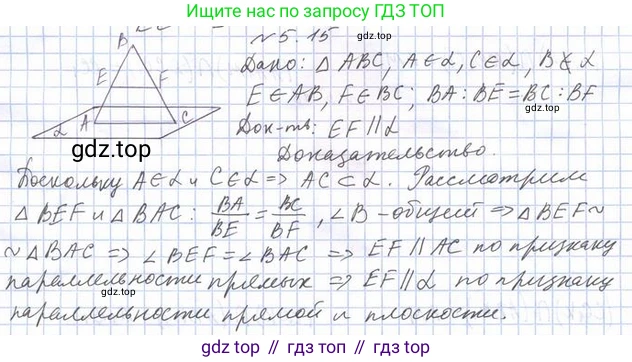 Ищите нас по запросу ГДЗ ТОП
№5.15
Дано: △ABC, A∈α, C∈α, B∉α
E∈AB, F∈BC; BA:BE=BC:BF
Док-ть: EF∥α
Доказательство.
Поскольку A∈α и C∈α ⇒ AC⊂α. Рассмотрим
△BEF и △BAC: BA/BE = BC/BF, ∠B-общий ⇒ △BEF~
~△BAC ⇒ ∠BEF=∠BAC ⇒ EF∥AC по признаку
параллельности прямых ⇒ EF∥α по признаку
параллельности прямой и плоскости.
B
E
F
A
C
α
gdz.top
gdz.top
gdz.top // gdz.top // gdz.top